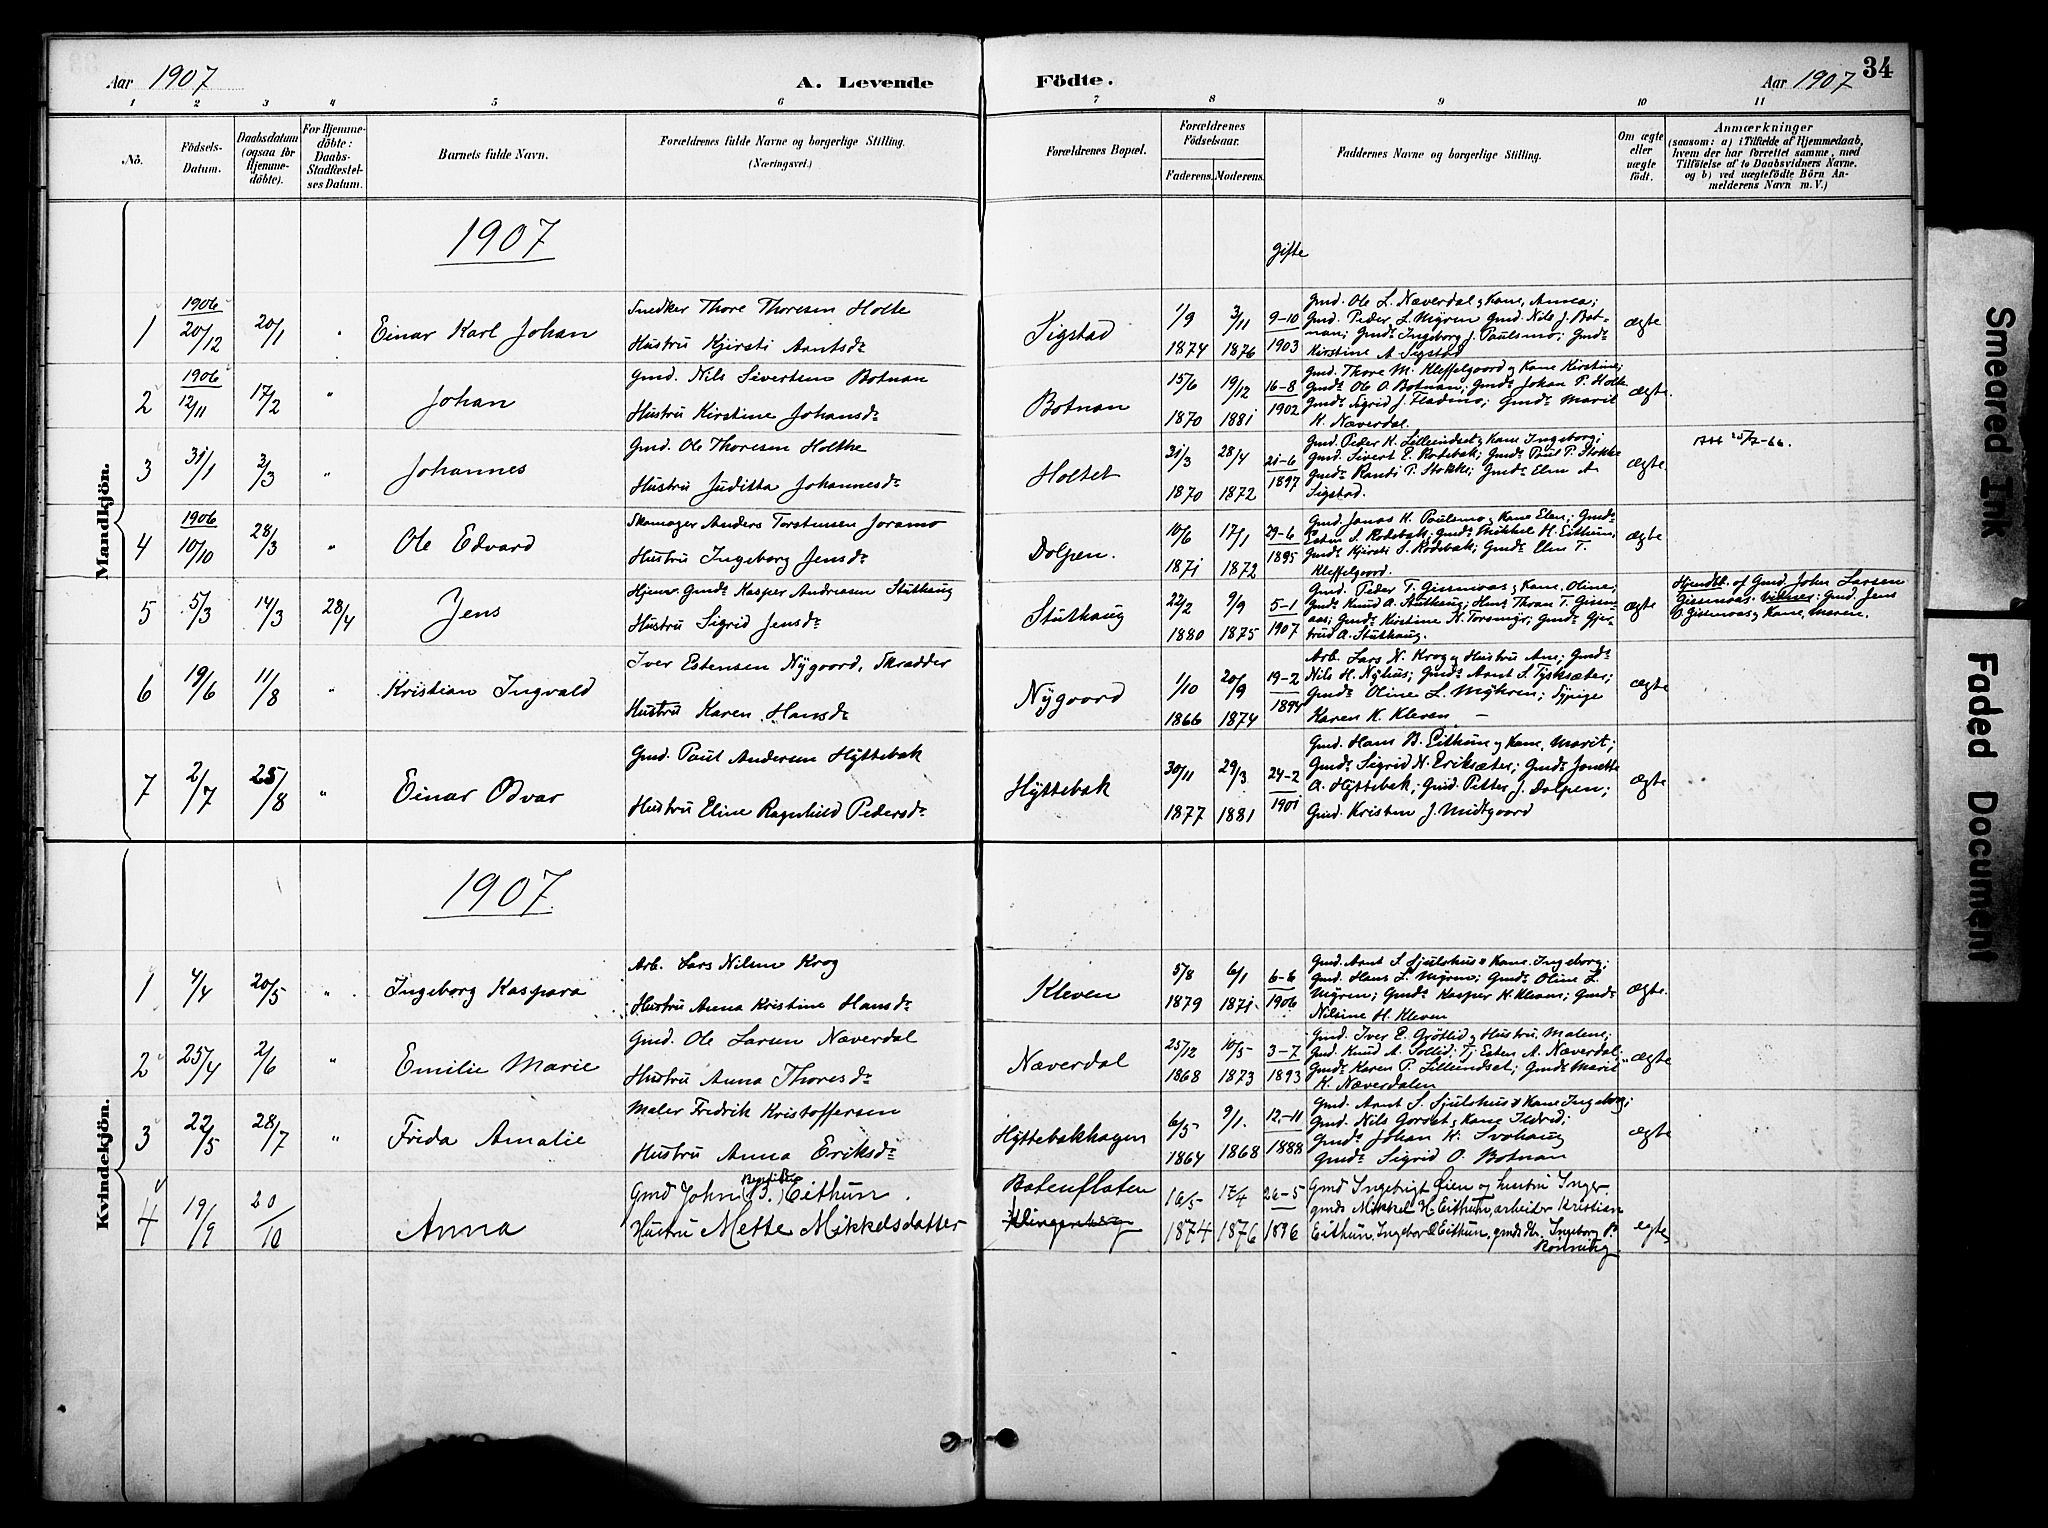 34
Aar 1907 A. Levende Födte. Aar 1907
1 2 3 4 5 6 7 8 9 10 11
No. Födsels-Datum. Daabsdatum (ogsaa for Hjemme-döbte). For Hjemme-döbte: Daabs-Stadfæstel-ses Datum. Barnets fulde Navn. Forældrenes fulde Navne og borgerlige Stilling. (Næringsvei.) Forældrenes Bopæl. Forældrenes Födselsaar. Faderens. Moderens. Faddernes Navne og borgerlige Stilling. Om ægte eller uægte födt. Anmærkninger (saasom: a) i Tilfælde af Hjemmedaab, hvem der har forrettet samme, med Tilföielse af to Daabsvidners Navne. og b) ved uægtefödte Börn An-melderens Navn m. V.)
Mandkjön.
1907
gifte
1 1906 20/12 20/1 " Einar Karl Johan
Snedker Thore Thoresen Holte
Hustru Kjirsti Arntsdr
Sigstad 1/9 1874 3/11 1876 9-10 1903
Gmd. Ole L. Næverdal og Kane, Anna;
Gmd. Peder L. Myren Gmd. Nils J. Bot-
nan; Gmdr Ingeborg J. Paulsmo; Gmdr
Kirstine A Sigstad
ægte
2 1906 12/11 17/2 " Johan
Gmd. Nils Sivertsen Botnan
Hustru Kirstine Johansdr
Botnan 15/6 1870 19/12 1881 16-8 1902
Gmd. Thore M. Kleffelgaard og Kane Kirstine;
Gmds Ole O. Botnan; Gmds Johan P. Holte
Gmdr Sigrid J. Fladmo; Gmdr Marit
K. Næverdal.
ægte.
3 31/1 3/3 " Johannes
Gmd. Ole Thoresen Holthe
Hustru Juditta Johannesdr
Holtet 21/3 1870 28/4 1872 21-6 1897
Gmd. Peder K. Lilleindset og Kane Ingeborg;
Gmd. Sivert E. Rodsbak; Gmds Paul P. Stokke
Gmdr Randi P. Stokke; Gmdr Elen A
Sigstad.
ægte.
4 1906 10/10 28/3 " Ole Edvard
Skomager Anders Torstensen Joramo
Hustru Ingeborg Jensdr
Dolpen. 10/6 1871 17/1 1872 29-6 1895
Gmd. Jonas K. Paulsmo og Kane Elen; Gmds
Esten S. Rodsbak; Gmds Mikkel H. Eithun;
Gmdr Kjirsti S. Rodsbak; Gmdr Elen T.
Kleffelgaard.
ægte
5 5/3 14/3 28/4 Jens
Hjemr. Gmds Kasper Andreasen Stuthaug
Hustru Sigrid Jensdr
Stuthaug 22/2 1880 9/9 1875 5-1 1907
Gmd. Peder T. Gisennaas og Kane, Oline;
Gmds Knud A. Stuthaug; Hmd Thron T. Gisen-
aas; Gmdr Kirstine K. Torsmyr; Gmdr Gjer-
trud A. Stuthaug.
ægte
Hjemdbt. af Gmd. John Larsen
Gisennaas. vidner: Gmd. Jens
Gisennaas og Kane, Maren.
6 19/6 11/8 " Kristian Ingvald
Iver Estensen Nygoord, Skrædder
Hustru Karen Hansdr
Nygoord 1/10 1866 20/9 1874 19-2 1894
Arb. Lars N. Krog og Hustru Ane; Gmds
Nils H. Nyhus; Gmds Arnt S. Tysksæter;
Gmdr Oline L. Myhren; Typige
Karen K. Kleven —
ægte
7 2/7 25/8 " Einar Odvar
Gmd. Paul Andersen Hyttebak
Hustru Eline Ragnhild Pedersdr
Hyttebak 30/11 1877 29/3 1881 24-2 1901
Gmd. Hans B. Eithun og Kane, Marit;
Gmdr Sigrid N. Eriksæter; Gmdr Jonette
A. Hyttebak; Gmd. Petter J. Dolpen;
Gmd. Kristen J. Midtgoord
ægte
Kvindekjön.
1907.
1 4/4 20/5 " Ingeborg Kaspara
Arb. Lars Nilsen Krog
Hustru Anna Kristine Hansdr
Kleven 5/8 1879 6/1 1871 6-6 1906
Gmd. Arnt S. Sjulshus & Kane. Ingeborg;
Gmd. Hans L. Myren; Gmdr Oline L.
Myren; Gmds Kasper K. Kleven; Gmdr
Nilsine H. Kleven
ægte.
2 25/4 2/6 " Emilie Marie
Gmd. Ole Larsen Næverdal
Hustru Anna Thoresdr
Næverdal 25/12 1868 10/5 1873 3-7 1893
Gmd. Iver E. Grøtlid og Hustru Malene;
Gmd. Knud A. Sollid; Tj Esten A. Næverdal,
Gmdr Karen P. Lilleindset; Gmdr Marit
K. Næverdalen
ægte
3 22/5 28/7 " Frida Amalie
Maler Fredrik Kristoffersen
Hustru Anna Eriksdr
Hyttebakhagen 6/5 1864 9/1. 1868 12-11 1888
Gmd. Arnt S. Sjulshus & Kane Ingeborg;
Gmd. Nils Gorset og Kane Ildrid;
Gmds Johan K. Svohaug
Gmdr Sigrid O. Botnan
ægte
4 19/9 20/10 Anna
Gmd John (B.) Eithun.
Hustru Mette Mikkelsdatter
Botenfloten
Klingenberg
16/5 1874 17/4 1876 26-5 1896
Gmd Ingebrigt Øien og hustru Inger.
gmds Mikkel H Eithun, arbeider Kristian
Eithun, Ingebor Eithun, gmds dtr. Ingeborg P.
Rønning.
egte
Smeared Ink
Faded Document